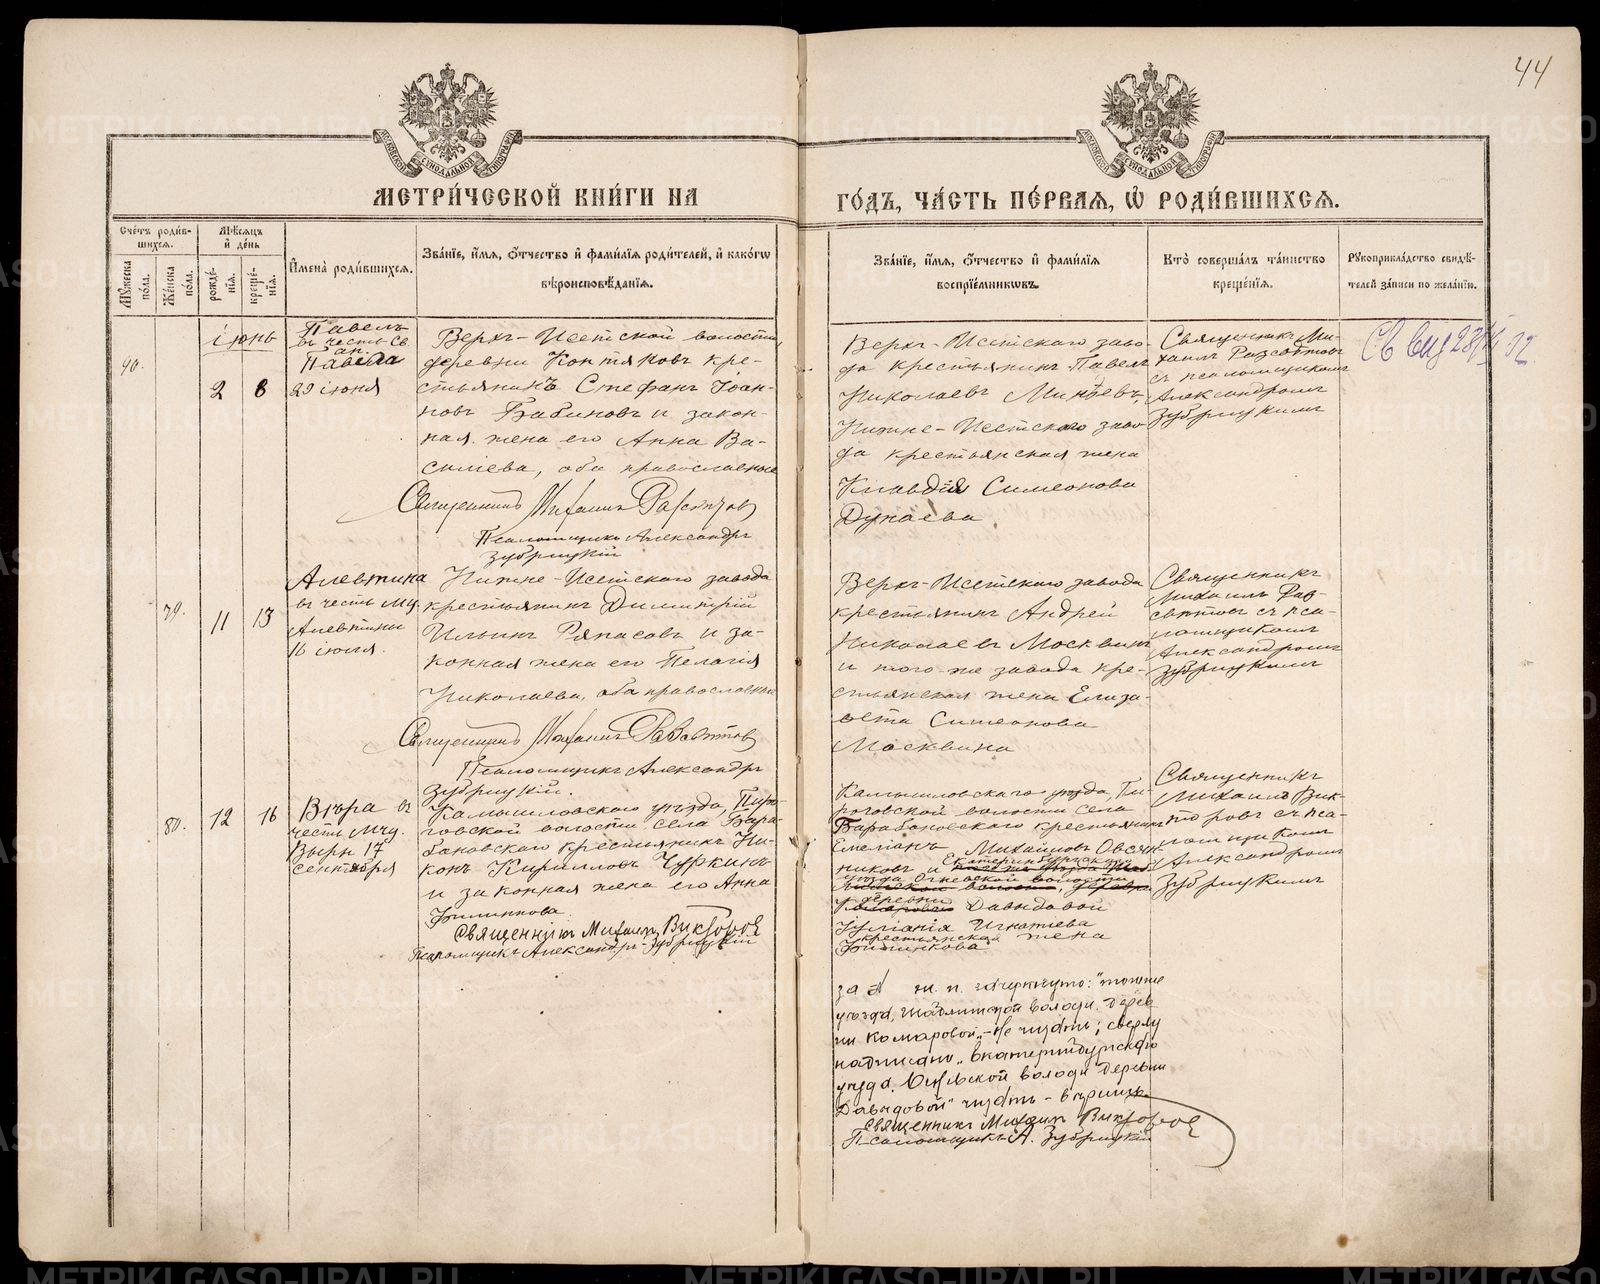 44
МЕТРИ́ЧЕСКОЙ КНИ́ГИ НА
ГО́ДЪ, ЧА́СТЬ ПЕ́РВАЯ, Ѡ РОДИ́ВШИХСЯ.
Сче́тъ роди́в-
шихся.
Му́жеска по́ла.
Же́нска по́ла.
Мѣ́сяцъ
и де́нь
рожде́-
нїя.
креще́-
нїя.
И҆мена̀ роди́вшихся.
Зва́нїе, и҆́мя, о҆́тчество и҆ фами́лїя роди́телей, и҆ како́гѡ
вѣроисповѣ́данїя.
Зва́нїе, и҆́мя, о҆́тчество и҆ фами́лїя
воспрїе́мникѡвъ.
Кто̀ соверша́лъ та́инство
креще́нїя.
Рукоприкла́дство свидѣ́-
телей за́писи по жела́нїю.
90.
іюнь
2 8
Павелъ
въ честь Св
ап.
Павла
29 іюня
Верхъ-Исетской волости,
деревни Контяковъ кре-
стьянинъ Стефанъ Іоан-
новъ Бабиновъ и закон-
ная жена его Анна Ва-
силіева, оба православные
Священникъ Михаилъ
Псаломщикъ Александръ
Зубрицкій
Верхъ-Исетскаго заво-
да крестьянинъ Павелъ
Николаевъ
Нижне-Исетскаго заво-
да крестьянская жена
Клавдія Симеонова
Дунаева.
Священникъ Ми-
хаилъ
съ псаломщикомъ
Александромъ
Зубрицкимъ
79.
11 13
Алевтина
въ честь мц.
Алевтины
16 іюля.
Нижне-Исетскаго завода
крестьянинъ Димитрій
Ильинъ Ряпасовъ и за-
конная жена его Пелагія
Николаева, оба православные
Священникъ Михаилъ
Псаломщикъ Александръ
Зубрицкій.
Верхъ-Исетскаго завода
крестьянинъ Андрей
Николаевъ Москвинъ
и того же завода кре-
стьянская жена Елиза-
вета Симеонова
Москвина
Священникъ
Михаилъ
съ пса-
ломщикомъ
Александромъ
Зубрицкимъ
80.
12 16
Вѣра въ
честь Мчц.
Вѣры 17
сентября
Камышловскаго уѣзда, Пиро-
говской волости села Бара-
бановскаго крестьянинъ Ни-
конъ Кирилловъ Чуркинъ
и законная жена его Анна
Филиппова.
Священникъ Михаилъ Викторовъ
Псаломщикъ Александръ Зубрицкій
Камышловскаго уѣзда, Пи-
роговской волости села
Барабановскаго крестьянинъ
Емеліанъ Михайловъ Овсян-
никовъ и Екатеринбургскаго
уѣзда
волости
деревни
Давыдовой
Іуліанія Игнатіева
крестьянская жена
Священникъ
Михаилъ Вик-
торовъ съ пса-
ломщикомъ
Александромъ
Зубрицкимъ
зачеркнуто: "тогоже
уѣзда, волости дерев
ни Комаровой" - не читать; сверху
надписано "Екатеринбургскаго
уѣзда, волости деревни
Давыдовой" читать - вѣрить.
Священникъ Михаилъ Викторовъ
Псаломщикъ А. Зубрицкій
METRIKI.GASO-URAL.RU